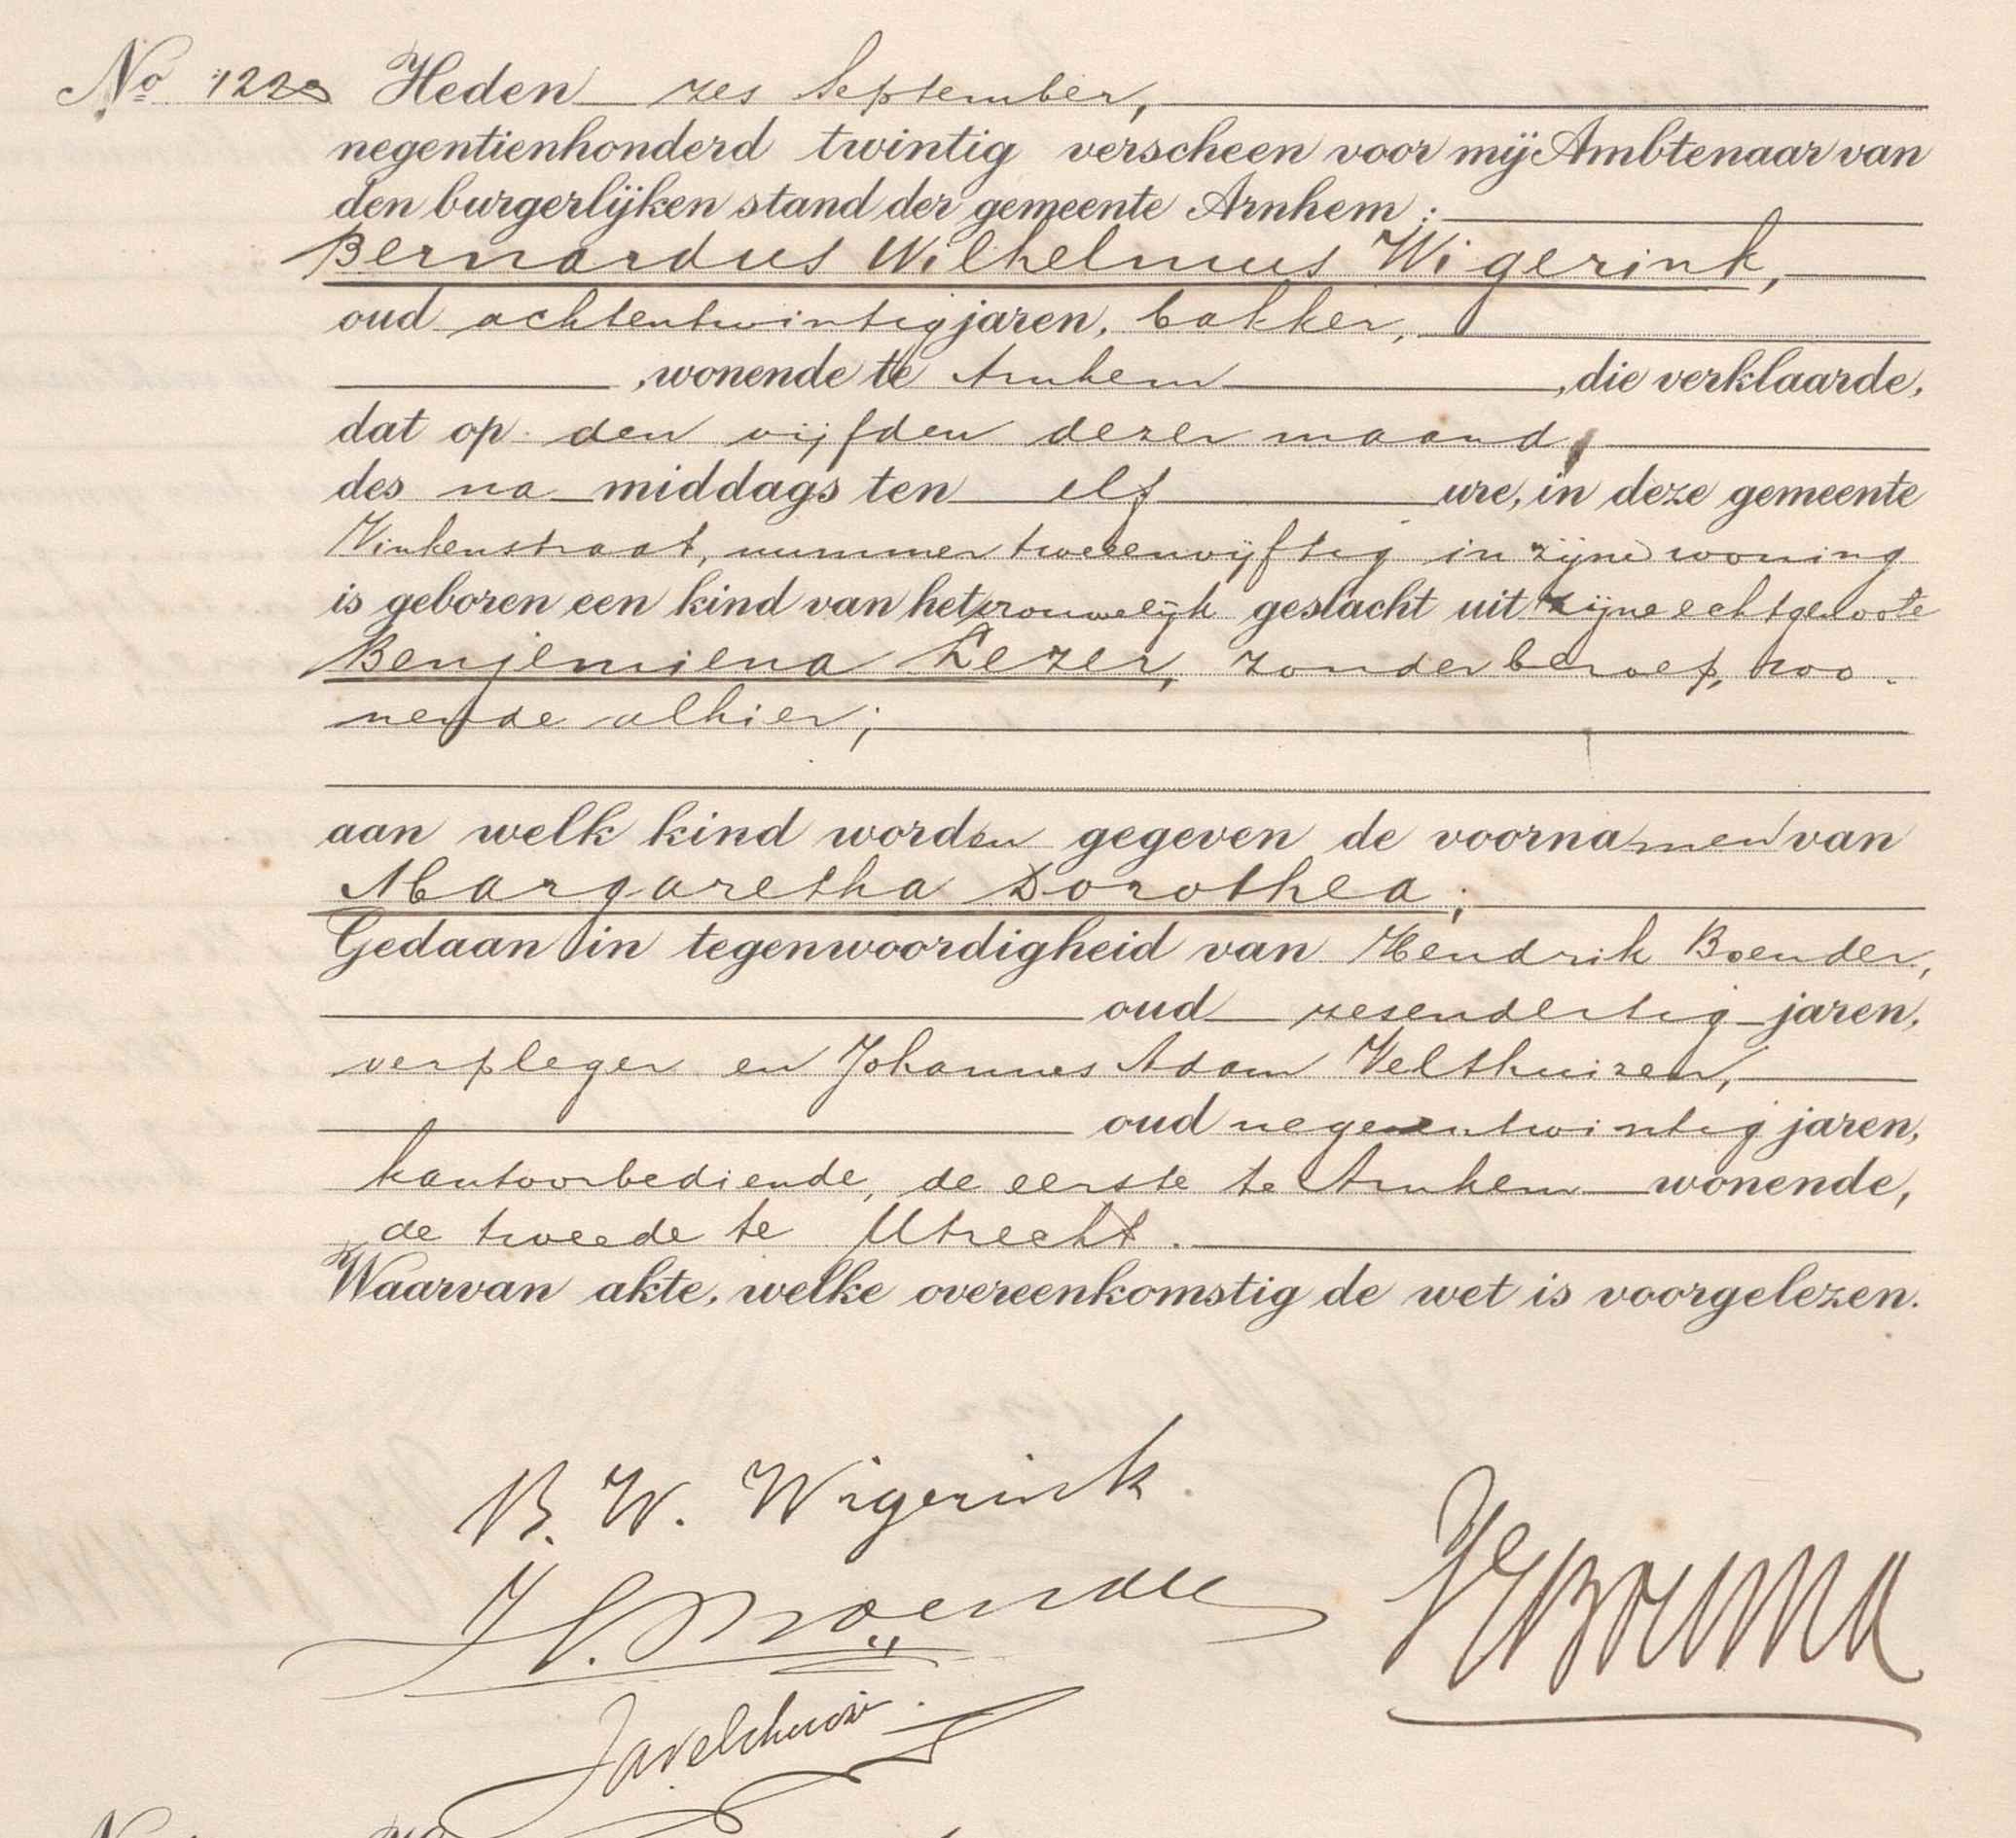 No 1220 Heden zes September,
negentienhonderd twintig verscheen voor mij Ambtenaar van
den burgerlijken stand der gemeente Arnhem:
Bernardus Wilhelmus Wigerink,
oud achtentwintig jaren, bakker,
, wonende te Arnhem, die verklaarde,
dat op den vijfden dezer maand,
des na middags ten elf ure, in deze gemeente
Vinkenstraat, nummer tweeenvijftig in zijne woning
is geboren een kind van het vrouwelijk geslacht uit zijne echtgenoote
Benjemiena Lezer, zonder beroep, woo-
nende alhier;
aan welk kind worden gegeven de voornamen van
Margaretha Dorothea;
Gedaan in tegenwoordigheid van Hendrik Boender,
oud zesendertig jaren,
verpleger en Johannes Adam Velthuizen,
oud negenentwintig jaren,
kantoorbediende, de eerste te Arnhem wonende,
de tweede te Utrecht.
Waarvan akte, welke overeenkomstig de wet is voorgelezen.
B. W. Wigerink
H. Boender
Bouma